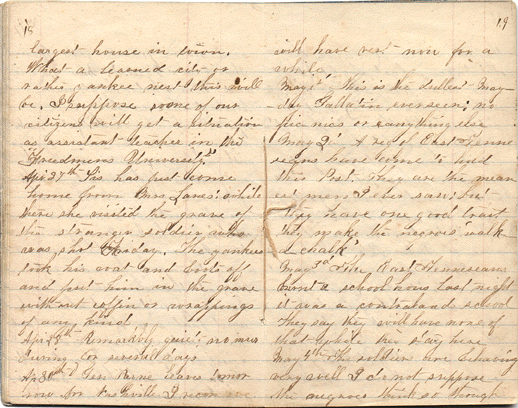 18
largest house in town.
What a learned city or
rather yankee nest this will
be. I suppose some of our
citizens will get a situation
as assistant teacher in the
"Freedmens University"
Apr 27th Sis has just come
home from Mrs Lanes: while
there she visited the grave of
the stranger soldier who
was shot Friday. The yankees
took his coat and boots off
and put him in the grave
without coffin or wrappings
of any kind
Apr 28th Remarkbly quiet: no mur
during for several days
Apr 30th Payne leaves tomor
row for Nashville I reckon we
19
will have rest now for a
while.
May 1st This is the dullest May-
day Gallatin ever seen: no
pic nics or anything else
May 2d A reg of East Tenne
seans have come to guard
this Post. They are the mean
est men I ever saw: but
they have one good trait
they make the negroes walk
d chalk'
May 3d The East Tennesseans
burnt a school house last night
it was a contraband school
They say they will have none of
that while they stay here
May 5th The soldiers are behaving
very well I do not suppose
the negroes think so though